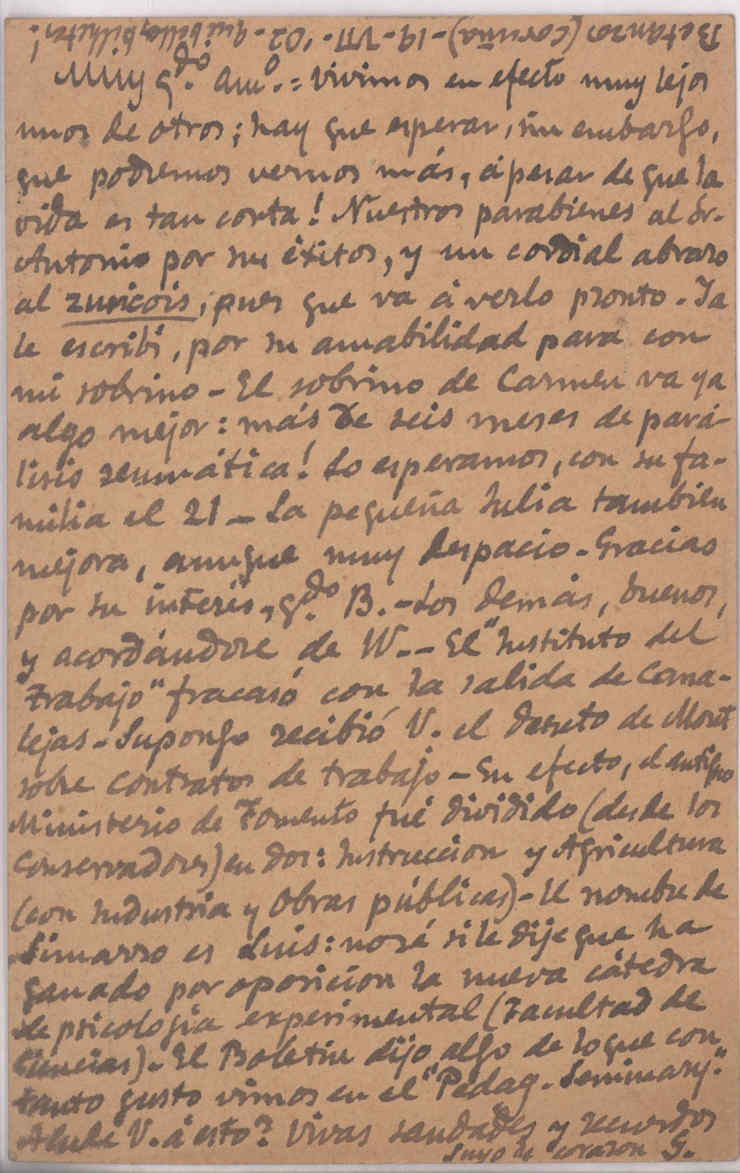 Betanzos (Coruña) - 19-VII-'02 -
Muy q.do am.o = Vivimos en efecto muy lejos
unos de otros; hay que esperar, sin embargo,
que podremos vernos más, á pesar de que la
vida es tan corta! Nuestros parabienes al Sr.
Antonio por sus éxitos, y un cordial abrazo
al zuricois, pues que va á verlo pronto - Ya
le escribí, por su amabilidad para con
mi sobrino - El sobrino de Carmen va ya
algo mejor: más de seis meses de pará-
lisis reumática! Lo esperamos, con su fa-
milia el 21 - La pequeña Julia tambien
mejora, aunque muy despacio - Gracias
por su interés, q.do B. - Los demás, buenos,
y acordándose de W. - El "Instituto del
Trabajo" fracasó con la salida de Cana-
lejas - Supongo recibió V. el decreto de Moret
sobre contratos de trabajo - En efecto, el antiguo
Ministerio de Fomento fué dividido (desde los
Conservadores) en dos: Instruccion y Agricultura
(con Industria y Obras públicas) - El nombre de
Simarro es Luis: no sé si le dije que ha
ganado por oposicion la nueva cátedra
de psicología experimental (Facultad de
Ciencias) - El Boletin dijo algo de lo que con
tanto gusto vimos en el "Pedag. Seminary."
Alude V. á esto? Vivas saudades y recuerdos
Suyo de corazon G.